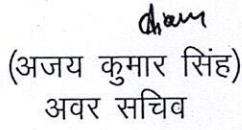 (अजय कुमार सिंह)
अवर सचिव